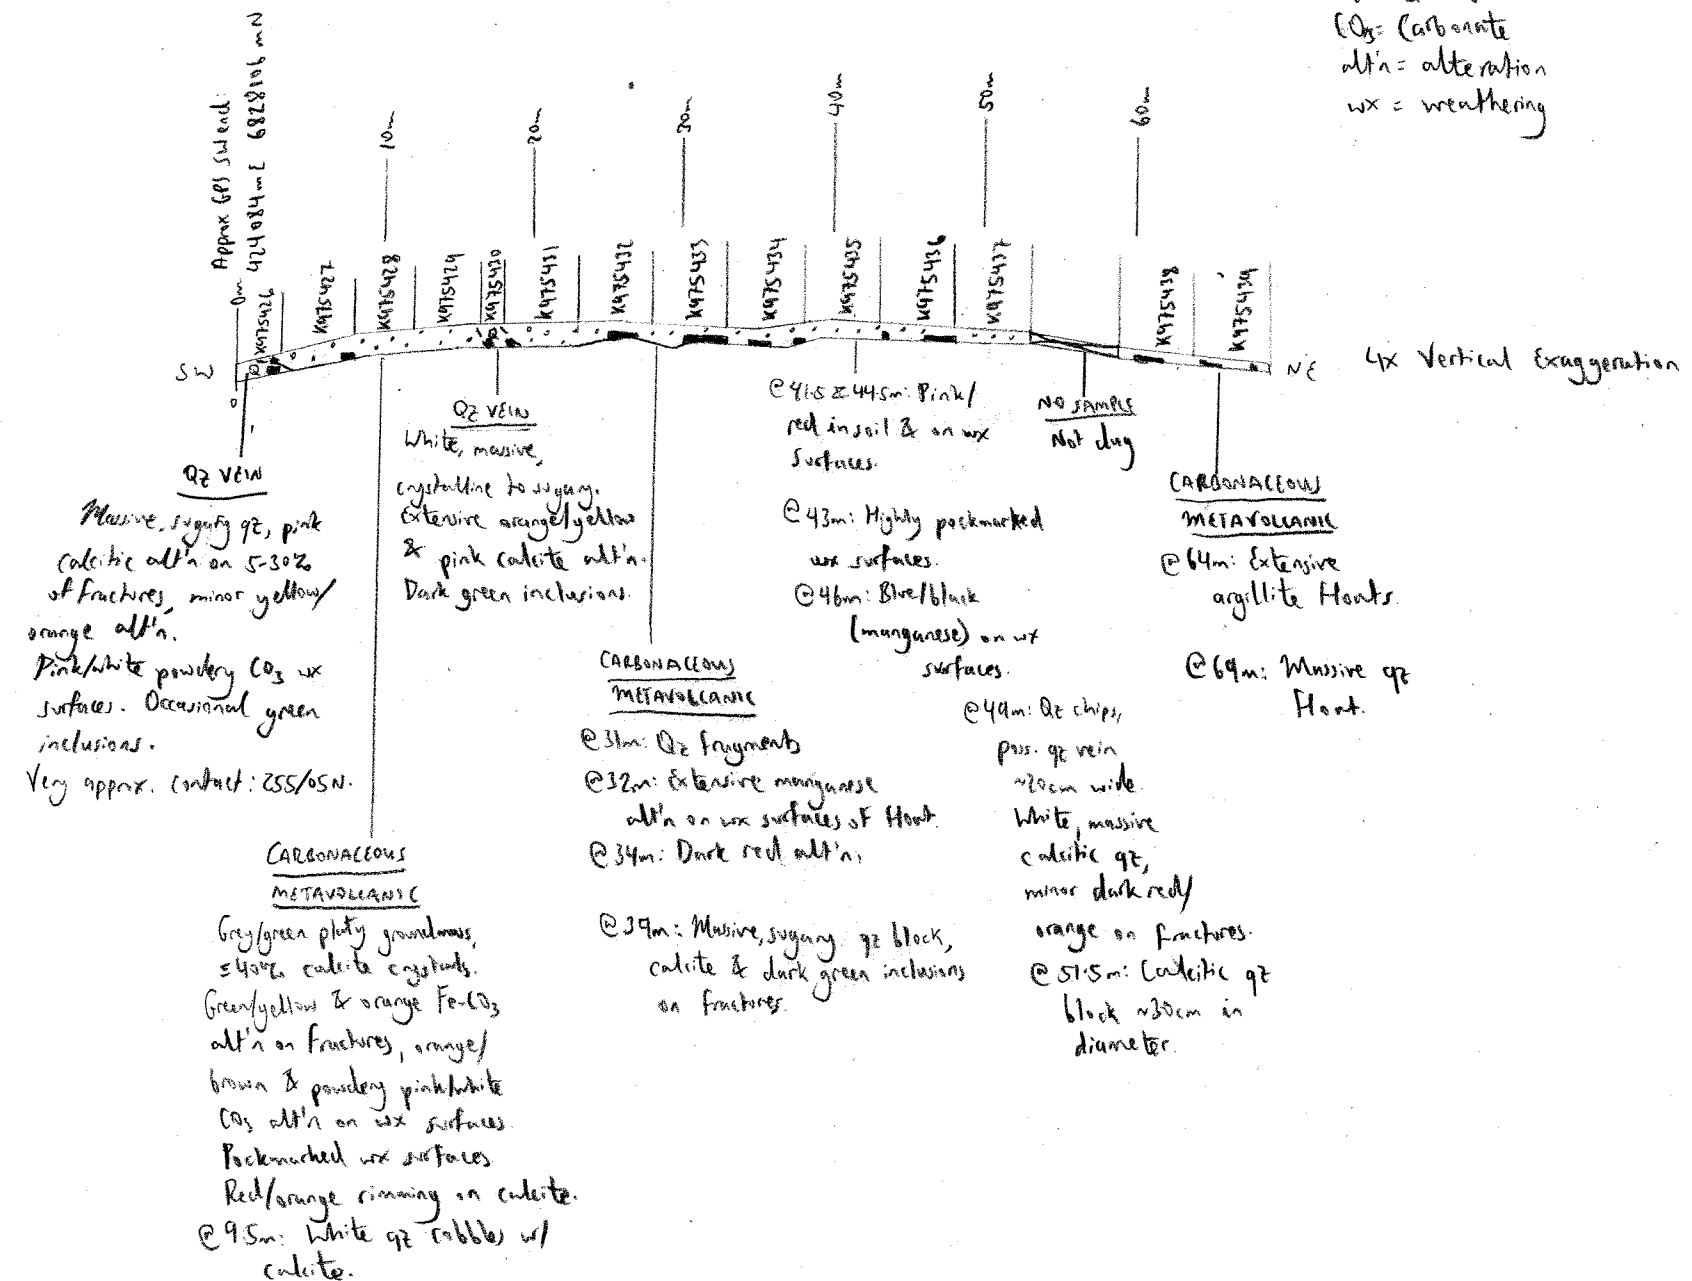 CO3= Carbonate
alt'n = alteration
wx = weathering
Approx GPS SW end:
424084mE 6828106mN
0m
10m
20m
30m
40m
50m
60m
K975426
K975427
K975428
K975429
K975430
K975431
K975432
K975433
K975434
K975435
K975436
K975437
K975438
K975439
SW
NE
4x Vertical Exaggeration
QZ VEIN
Massive, sugary qz, pink
calcitic alt'n on 5-30%
of fractures, minor yellow/
orange alt'n.
Pink/white powdery CO3 wx
surfaces. Occasional green
inclusions.
Very approx. contact: 255/05N.
CARBONACEOUS
METAVOLCANIC
Grey/green platy groundmass,
≤40% calcite crystals.
Green/yellow & orange Fe-CO3
alt'n on fractures, orange/
brown & powdery pink/white
CO3 alt'n on wx surfaces.
Pockmarked wx surfaces
Red/orange rimming on calcite.
@ 9.5m: White qz cobbles w/
calcite.
QZ VEIN
White, massive,
crystalline to sugary.
Extensive orange/yellow
& pink calcite alt'n.
Dark green inclusions.
CARBONACEOUS
METAVOLCANIC
@ 31m: Qz fragments
@ 32m: Extensive manganese
alt'n on wx surfaces of float.
@ 34m: Dark red alt'n.
@ 39m: Massive, sugary qz block,
calcite & dark green inclusions
on fractures.
@ 41.5 & 44.5m: Pink/
red in soil & on wx
surfaces.
@ 43m: Highly pockmarked
wx surfaces.
@ 46m: Blue/black
(manganese) on wx
surfaces.
@ 49m: Qz chips,
poss. qz vein
~20cm wide.
White, massive
calcitic qz,
minor dark red/
orange on fractures.
@ 51.5m: Calcitic qz
block ~30cm in
diameter.
NO SAMPLE
Not dug
CARBONACEOUS
METAVOLCANIC
@ 64m: Extensive
argillite floats.
@ 69m: Massive qz
float.